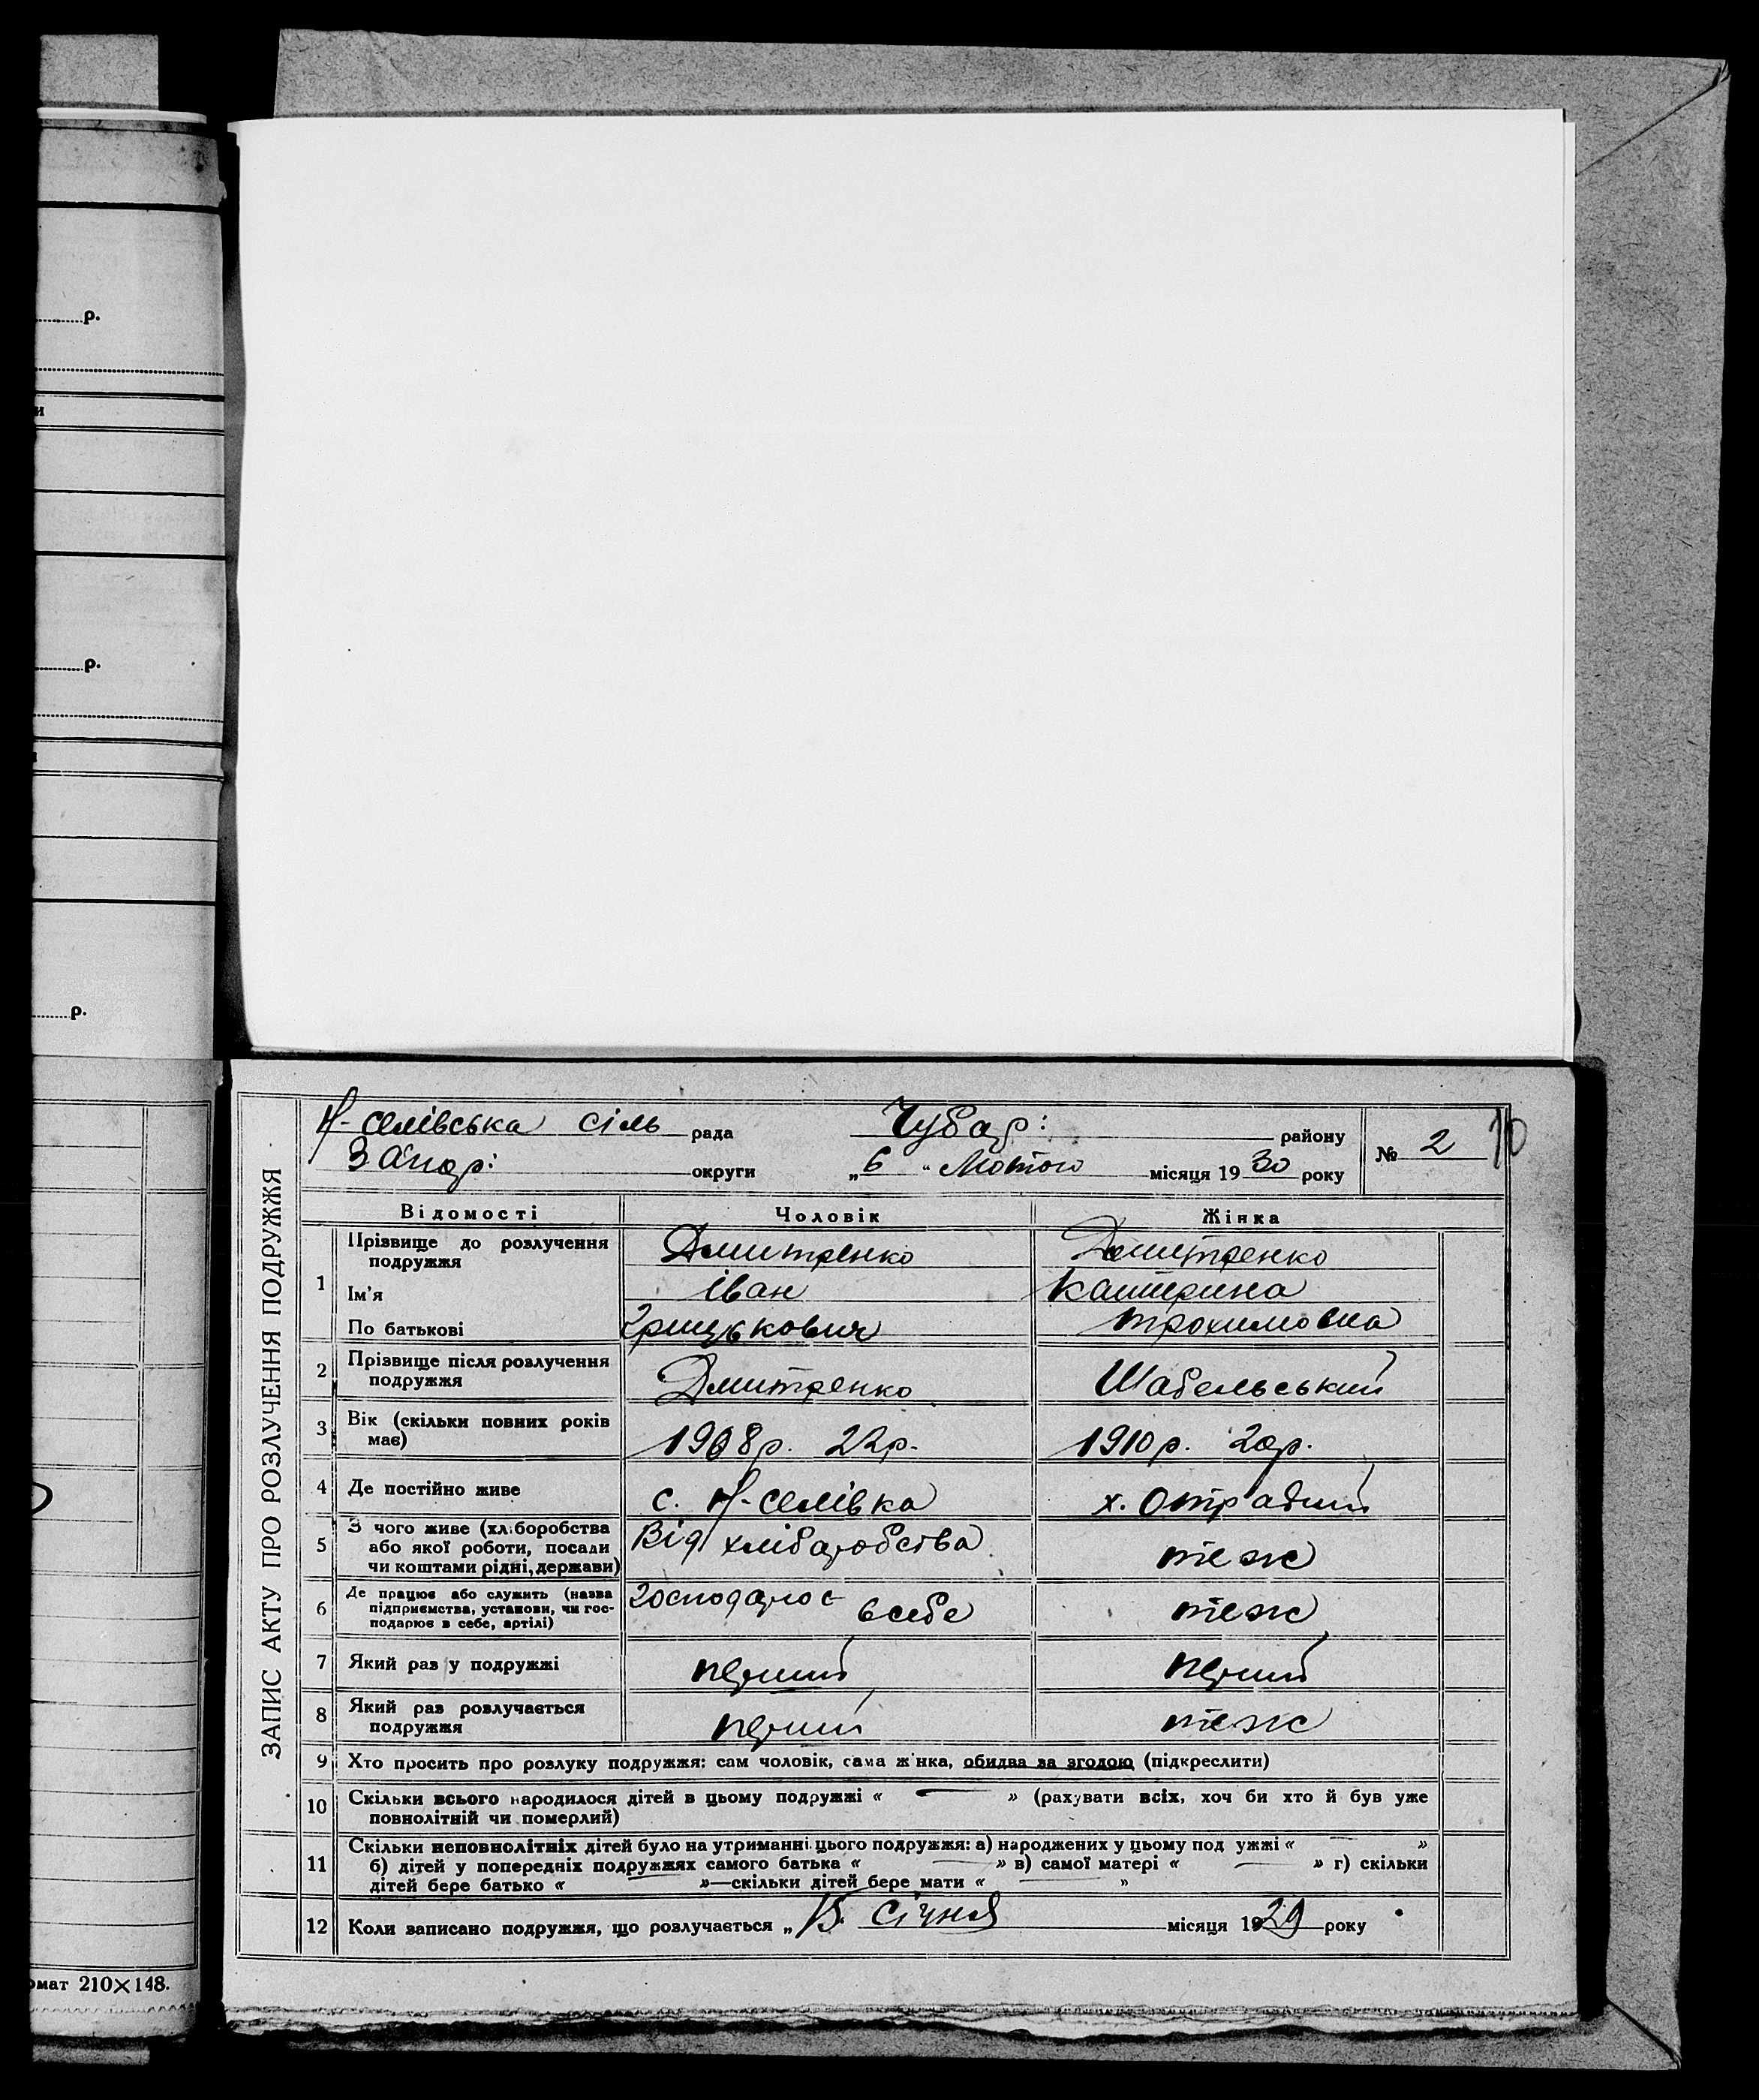 р.
и
р.
р.
омат 210×148.
ЗАПИС АКТУ ПРО РОЗЛУЧЕННЯ ПОДРУЖЖЯ
Н-селівська сіль рада Чубар: району № 2 10
Запор: округи „6“ Лютого місяця 1930 року
Відомості Чоловік Жінка
1 Прізвище до розлучення подружжя Дмитренко Дмитренко
Ім'я Іван Катерина
По батькові Грицькович Трохимовна
2 Прізвище після розлучення
подружжя Дмитренко Шабельський
3 Вік (скільки повних років
має) 1908р. 22р. 1910р. 20р.
4 Де постійно живе с. Н-селівка х. Отрадний
5 З чого живе (хліборобства Від хліборобства теж
або якої роботи, посади
чи коштами рідні, держави)
6 Де працює або служить (назва господарює в себе теж
підприємства, установи, чи гос-
подарює в себе, артілі)
7 Який раз у подружжі перший перший
8 Який раз розлучається
подружжя перший теж
9 Хто просить про розлуку подружжя: сам чоловік, сама жінка, обидва за згодою (підкреслити)
10 Скільки всього народилося дітей в цьому подружжі « — » (рахувати всіх, хоч би хто й був уже
повнолітній чи померлий)
11 Скільки неповнолітніх дітей було на утриманні цього подружжя: а) народжених у цьому подружжі « — »
б) дітей у попередніх подружжях самого батька « — » в) самої матері « — » г) скільки
дітей бере батько « »—скільки дітей бере мати « — »
12 Коли записано подружжя, що розлучається „15 Січня місяця 1929 року